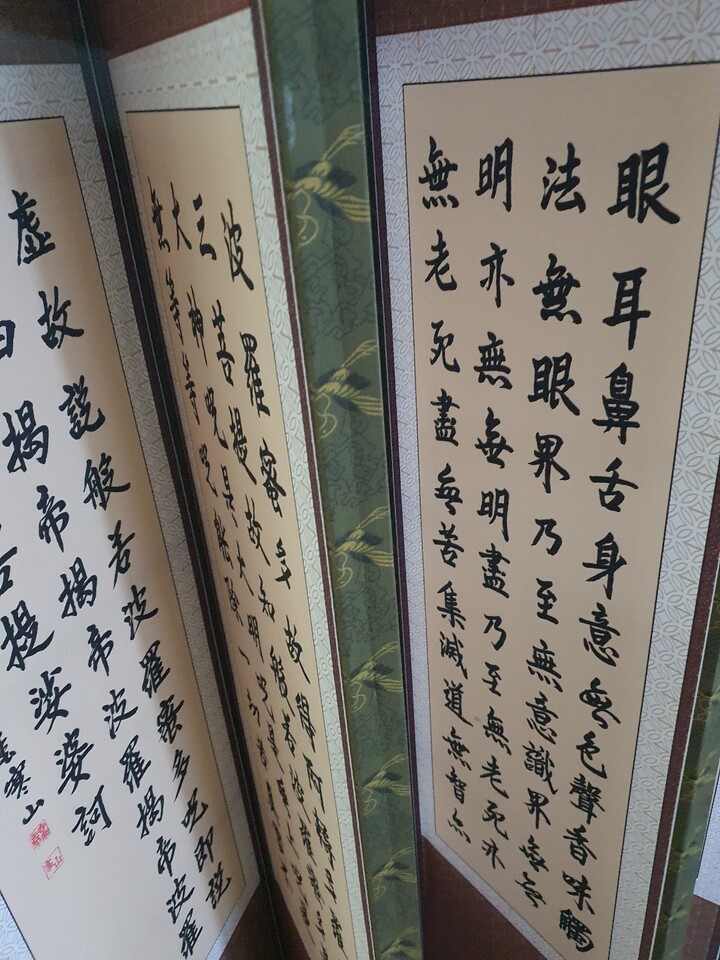 眼耳鼻舌身意無色聲香味觸
法無眼界乃至無意識界無無
明亦無無明盡乃至無老死亦
無老死盡無苦集滅道無智亦
波羅蜜多故得阿耨多羅
三菩提故知般若波羅蜜多
大神咒是大明咒是無上咒
無等等咒能除一切苦真實
虛故說般若波羅蜜多咒即說
曰揭帝揭帝波羅揭帝波羅
菩提娑婆訶
寒山